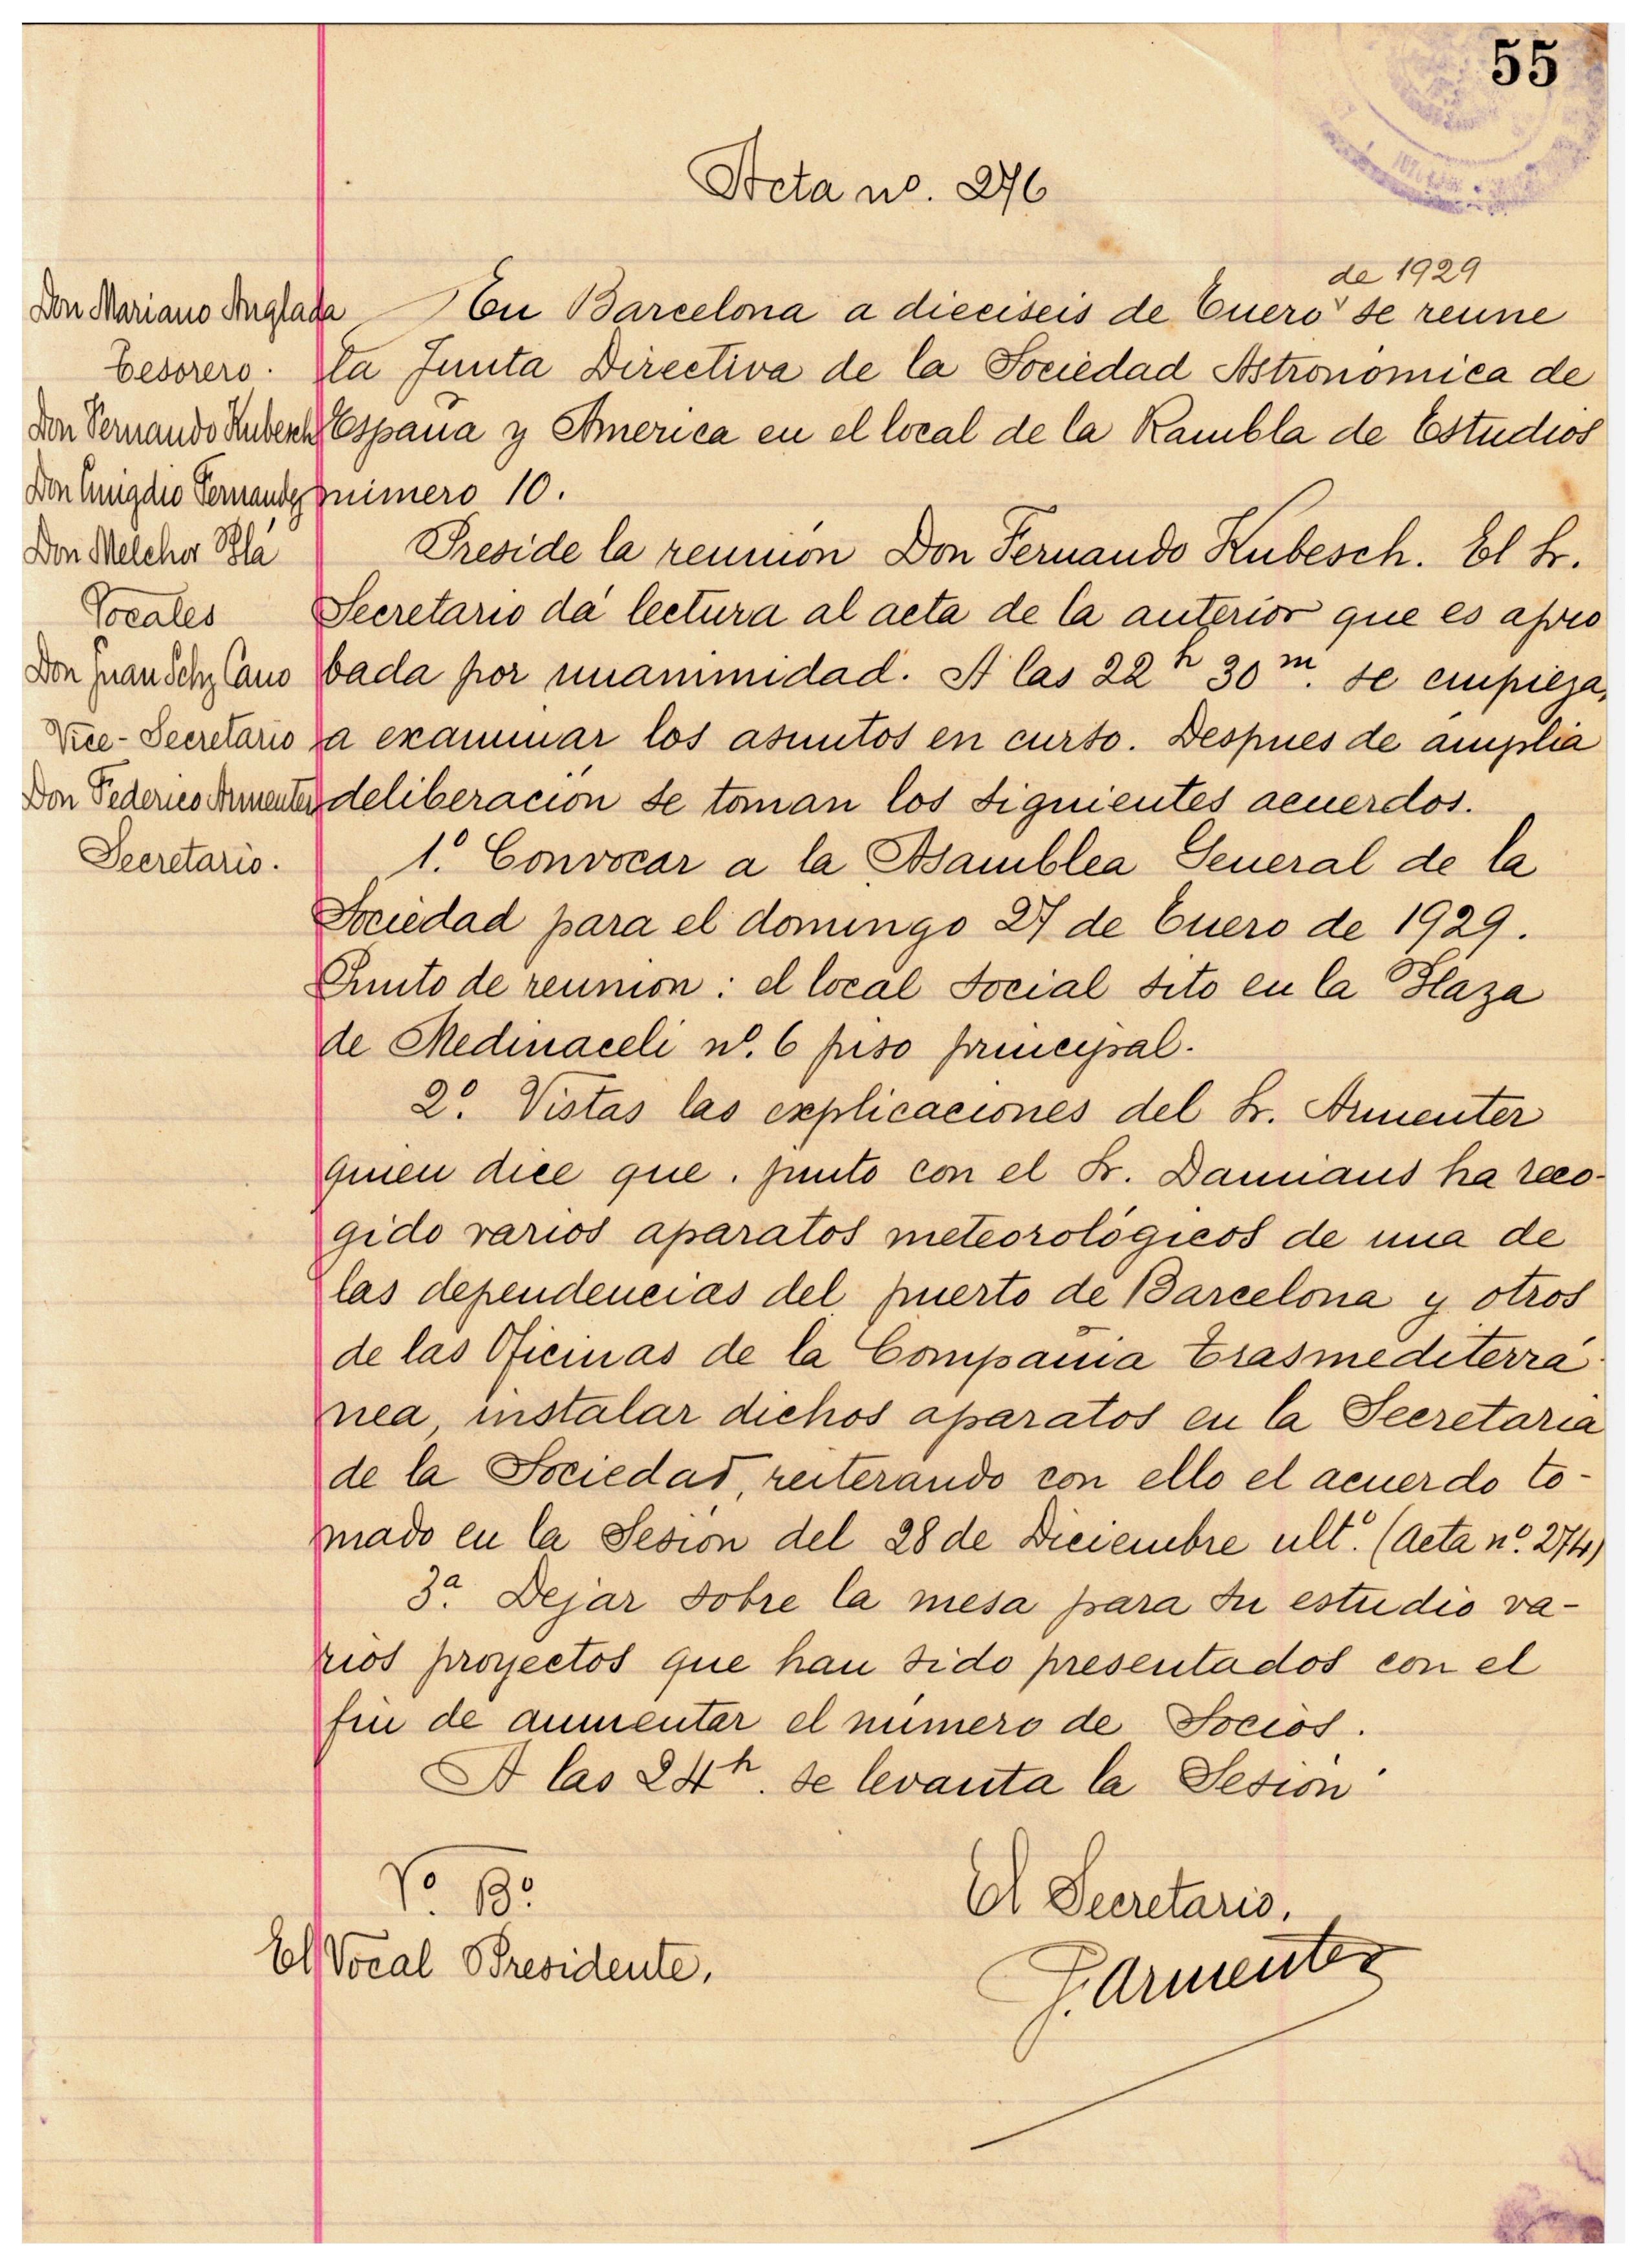 55
Acta nº. 276
Don Mariano Anglada
Tesorero.
Don Fernando Kubesch
Don Emigdio Fernandez
Don Melchor Plá
Vocales
Don Juan Schz Cano
Vice-Secretario
Don Federico Armenter
Secretario.
de 1929
En Barcelona a dieciseis de Enero se reune
la Junta Directiva de la Sociedad Astronómica de
España y America en el local de la Rambla de Estudios
número 10.
Preside la reunión Don Fernando Kubesch. El Sr.
Secretario dá lectura al acta de la anterior que es apro
bada por unanimidad. A las 22 h 30 m. se empieza,
a examinar los asuntos en curso. Despues de amplia
deliberación se toman los siguientes acuerdos.
1º. Convocar a la Asamblea General de la
Sociedad para el domingo 27 de Enero de 1929.
Punto de reunión: el local social sito en la Plaza
de Medinaceli nº. 6 piso principal.
2º. Vistas las explicaciones del Sr. Armenter
quien dice que, junto con el Sr. Damians ha reco-
gido varios aparatos meteorológicos de una de
las dependencias del puerto de Barcelona y otros
de las Oficinas de la Compañia Trasmediterrá-
nea, instalar dichos aparatos en la Secretaria
de la Sociedad, reiterando con ello el acuerdo to-
mado en la Sesión del 28 de Diciembre ultº. (Acta nº. 274)
3ª. Dejar sobre la mesa para su estudio va-
rios proyectos que han sido presentados con el
fin de aumentar el número de Socios.
A las 24h. se levanta la Sesión
Vº. Bº.
El Vocal Presidente,
El Secretario,
F. Armenter